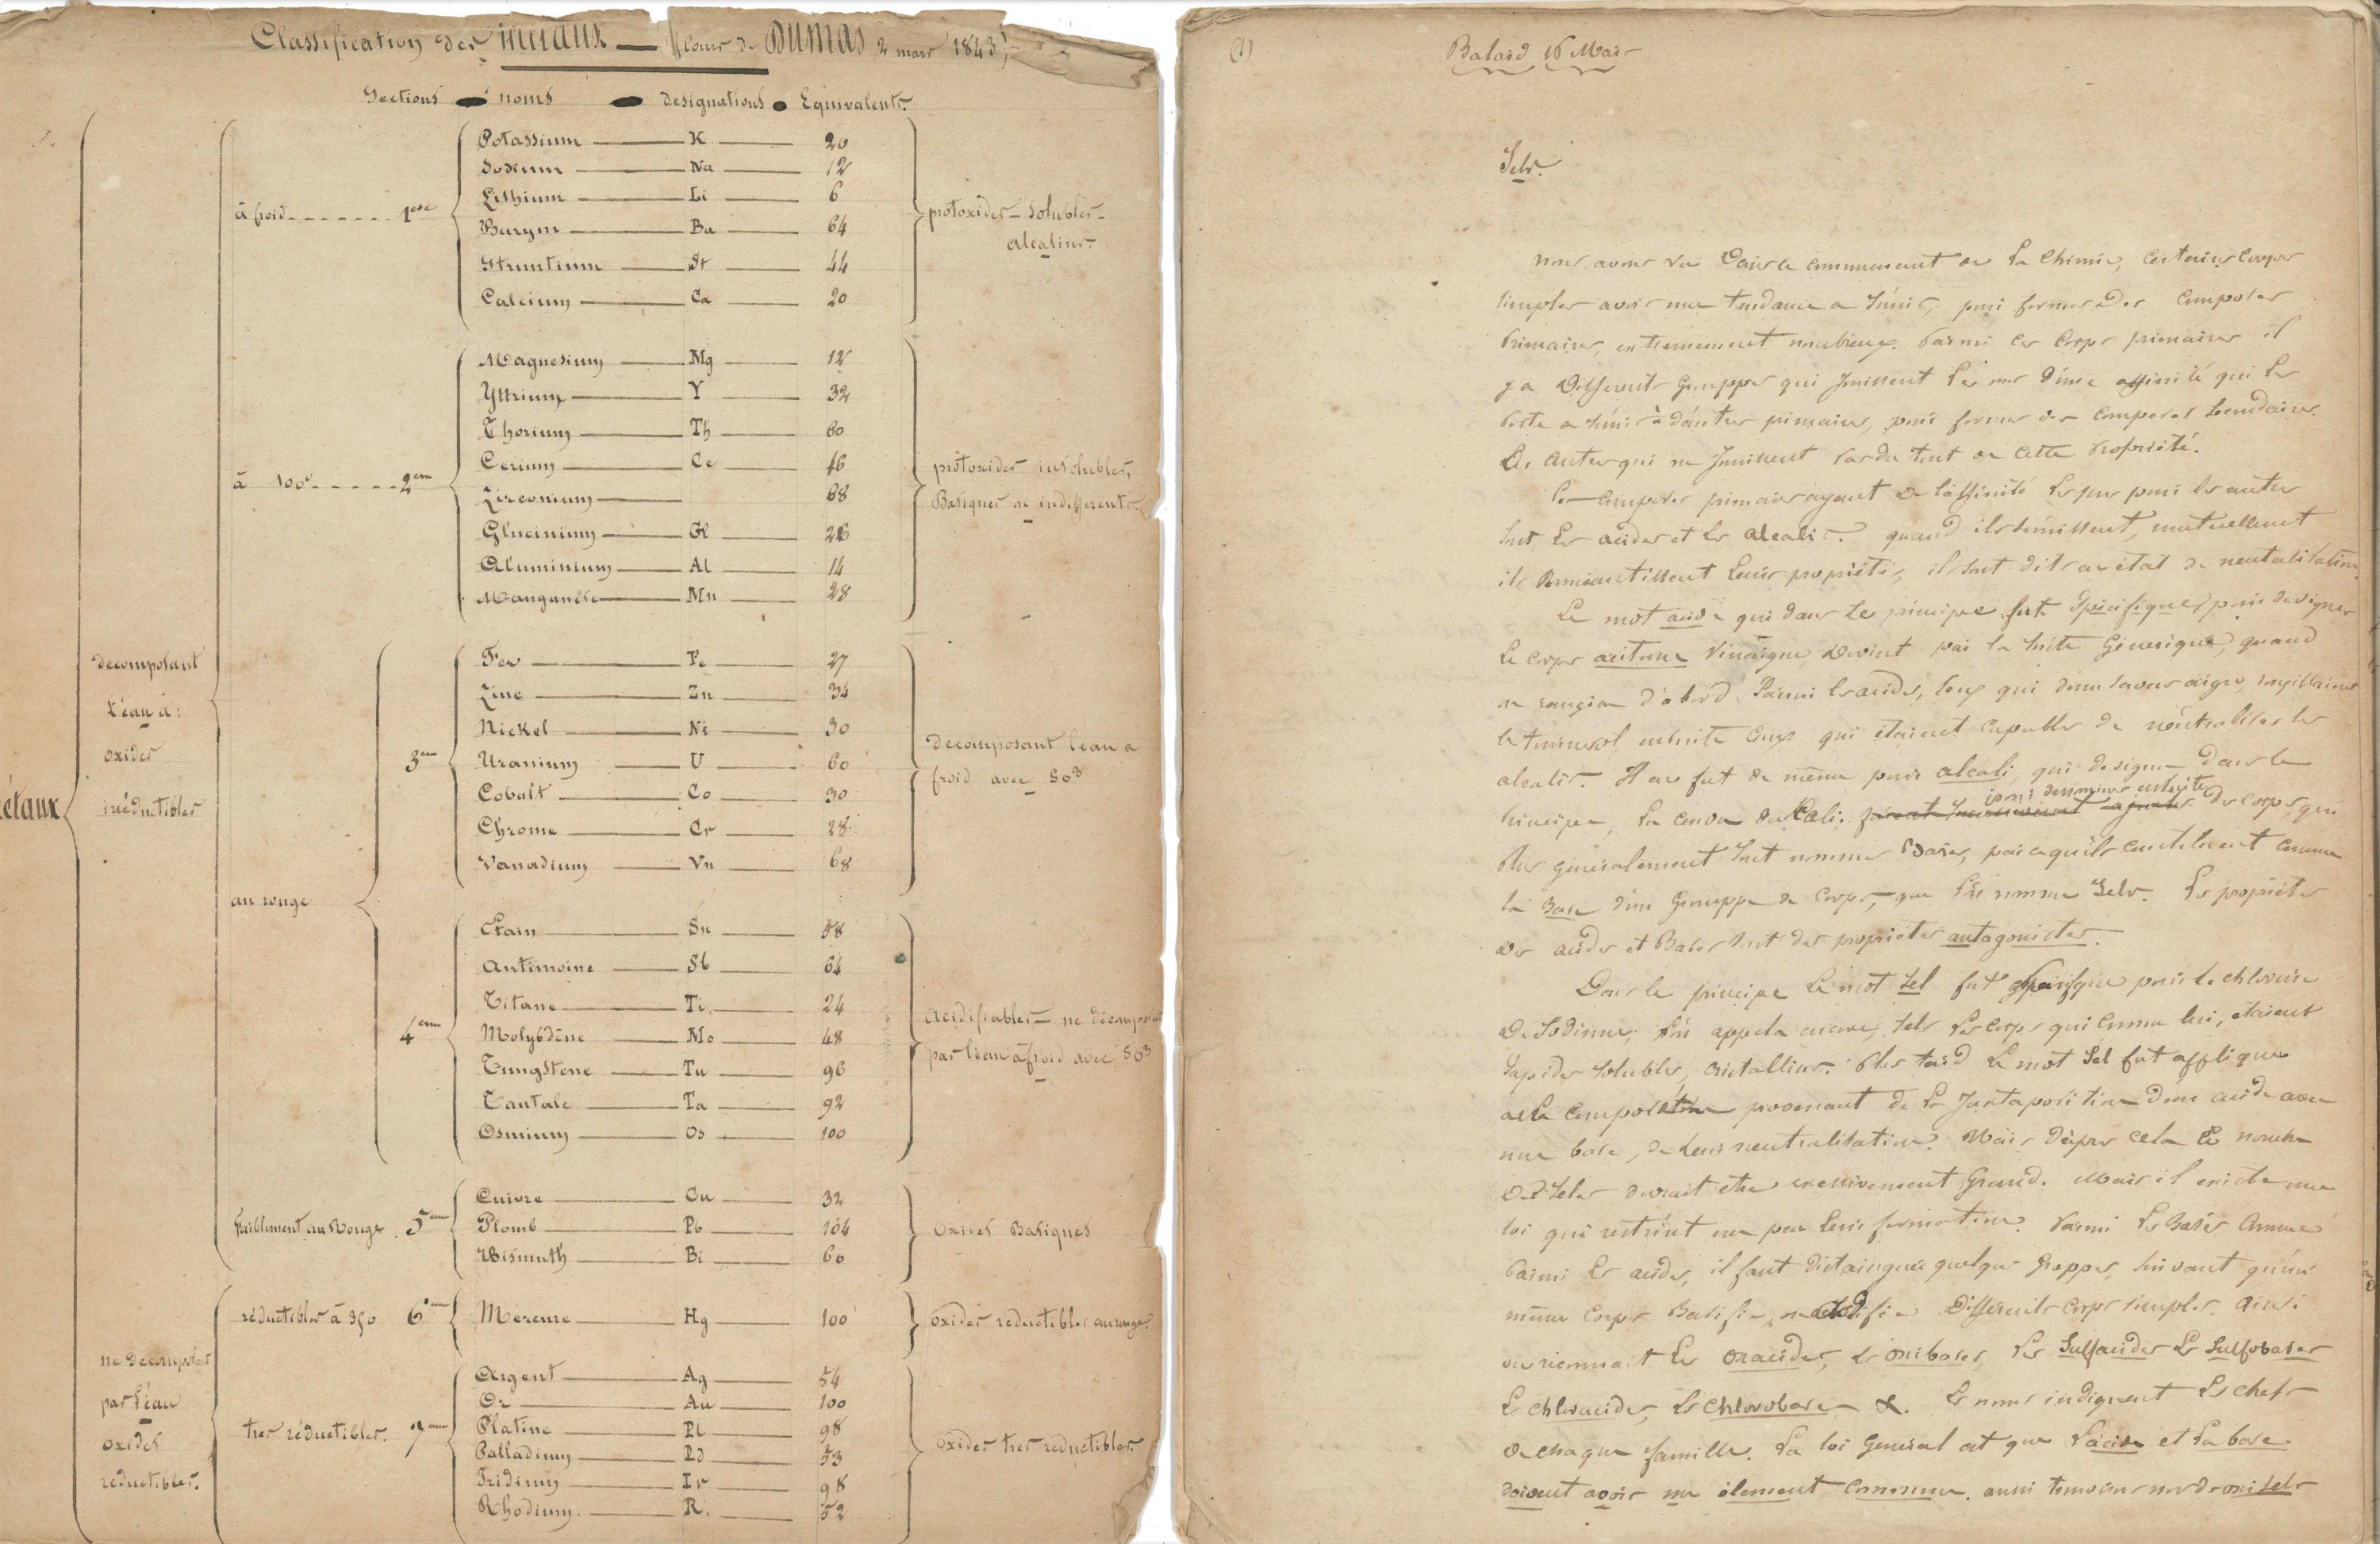 Classification des métaux — (Cours de Dumas 2 mars 1843)
Sections noms designations Equivalents
Potassium K 20
Sodium Na 12
Lithium Li 6
à froid 1ere
Barym Ba 64
protoxides solubles
alcalins
Strontium St 44
Calcium Ca 20
Magnesium Mg 12
Yttrium Y 32
Thorium Th 60
Cerium Ce 46
à 100° 2em
protoxides insolubles,
Zirconium 68
Basiques ou indifferents
Glucinium Gl 26
Aluminium Al 14
Manganèse Mn 28
Fer Fe 27
decomposant
l'eau à:
oxides
irréductibles
Zinc Zn 34
Nickel Ni 30
3em
Uranium U 60
decomposant l'eau a
froid avec SO3
Cobalt Co 30
métaux
Chrome Cr 28
Vanadium Vn 68
au rouge
Etain Sn 58
Antimoine Sb 64
Titane Ti 24
acidifiables — ne décomposant
par l'eau à froid avec SO3
4em
Molybdène Mo 48
Tungstene Tu 96
Tantale Ta 92
Osmium Os 100
Cuivre Cu 32
faiblement au Rouge 5em
Plomb Pb 104
Oxides Basiques
Bismuth Bi 60
réductibles à 350 6em
Mercure Hg 100
oxides reductibles au rouge
ne decomposant
par l'eau
oxides
reductibles.
Argent Ag 54
Or Au 100
tres réductibles. 7em
Platine Pl 98
oxides tres reductibles
Palladium Pd 53
Iridium Ir 98
Rhodium. R. 52
(1)
Balard 16 Mars
Sels.
nous avons vu Dans le commencement de la Chimie, certains Corps
simples avoir une tendance a s'unir, pour former Des Composés
Primaires, extremement nombreux. Parmi ces Corps primaires il
y a Differents Grouppes qui Jouissent les uns d'une affinité qui les
Porte a s'unir à d'autres primaires, pour former des Composés secondaires.
Des Autres qui ne Jouissent Pas du tout de Cette Propriété.
Les Composés primaires ayant de l'affinité les uns pour les autres
sont les acides et les alcalis. quand ils s'unissent, mutuellement
ils aneantissent leurs propriétés, ils sont dits en état de neutralisation.
Le mot acide qui dans Le principe fut Spécifique, pour designer
Le corps acetum Vinaigre, Devint par la suite Generique, quand
on rangea d'abord Parmi les acides, ceux qui d'une saveur aigre, rougissaient
le tournesol ensuite Ceux qui étaient Capables de neutraliser les
alcalis. Il en fut de même pour alcali, qui designa Dans le
Principe, la cendre du Kali, pour denommer ensuite des corps, qui
Plus généralement sont nommés Bases, parcequ'ils constituent comme
la Base d'un Grouppe de Corps, que l'on nomme Sels. les propriétés
des acides et Bases sont des propriétés antagonistes.
Dans le principe Le mot Sel fut specifique pour le chlorure
De Sodium; l'on appela encore, Sels les Corps qui comme lui, étaient
Sapides solubles, cristallins. Plus tard Le mot Sel fut appliqué
provenant de la Juxtaposition d'un acide avec
une base, de leur neutralisation. Mais d'après cela le nombre
Des Sels devrait etre excessivement Grand. Mais il existe une
loi qui restreint un peu leur formation. Parmi les Bases comme
Parmi les acides, il faut distainguer quelques Groppes, suivant qu'un
même Corps Basifie, ou acidifie Differents Corps simples. Ainsi
on reconnait les oxacides, les oxibases, les Sulfacides les Sulfobases
Les chloracides, les Chlorobases &. les noms indiquent les chefs
de chaque famille. La loi General est que l'acide et la base
doivent avoir un element Commun. aussi trouvons nous des oxisels